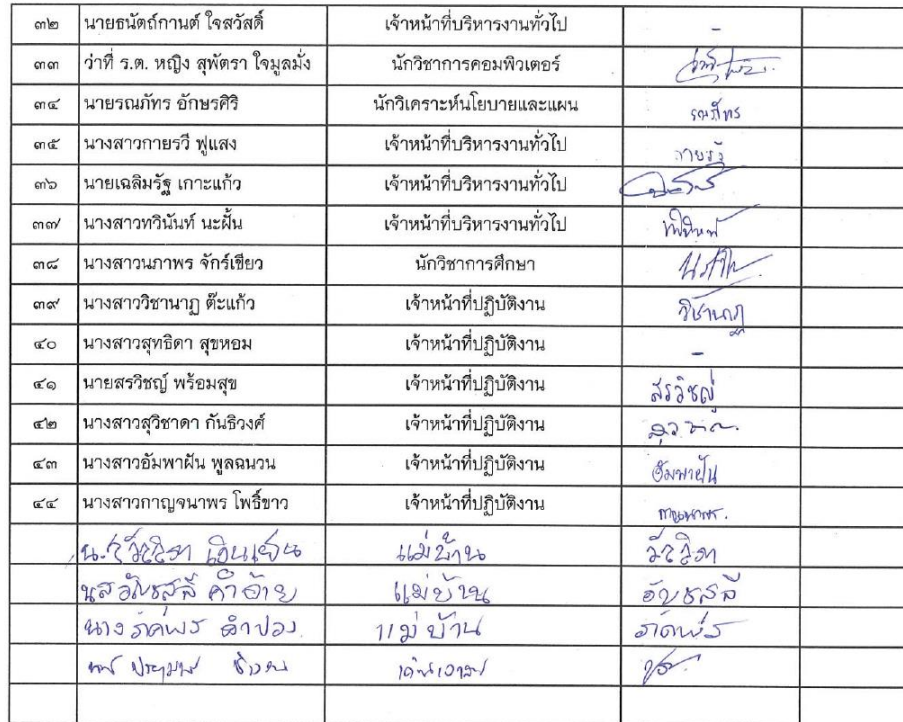 ๓๒ นายธนัตถ์กานต์ ใจสวัสดิ์ เจ้าหน้าที่บริหารงานทั่วไป -
๓๓ ว่าที่ ร.ต. หญิง สุพัตรา ใจมูลมั่ง นักวิชาการคอมพิวเตอร์
๓๔ นายรณภัทร อักษรศิริ นักวิเคราะห์นโยบายและแผน รณภัทร
๓๕ นางสาวกายรวี ฟูแสง เจ้าหน้าที่บริหารงานทั่วไป กายรวี
๓๖ นายเฉลิมรัฐ เกาะแก้ว เจ้าหน้าที่บริหารงานทั่วไป
๓๗ นางสาวทวินันท์ นะฝั้น เจ้าหน้าที่บริหารงานทั่วไป
๓๘ นางสาวนภาพร จักร์เขียว นักวิชาการศึกษา
๓๙ นางสาววิชานาฏ ต๊ะแก้ว เจ้าหน้าที่ปฏิบัติงาน วิชานาฏ
๔๐ นางสาวสุทธิดา สุขหอม เจ้าหน้าที่ปฏิบัติงาน -
๔๑ นายสรวิชญ์ พร้อมสุข เจ้าหน้าที่ปฏิบัติงาน สรวิชญ์
๔๒ นางสาวสุวิชาดา กันธิวงศ์ เจ้าหน้าที่ปฏิบัติงาน
๔๓ นางสาวอัมพาฝัน พูลฉนวน เจ้าหน้าที่ปฏิบัติงาน อัมพาฝัน
๔๔ นางสาวกาญจนาพร โพธิ์ขาว เจ้าหน้าที่ปฏิบัติงาน กาญจนาพร.
น.ส แม่บ้าน
นส อัญชสลี คำอ้าย แม่บ้าน อัญชสลี
นาง ลำปวง แม่บ้าน